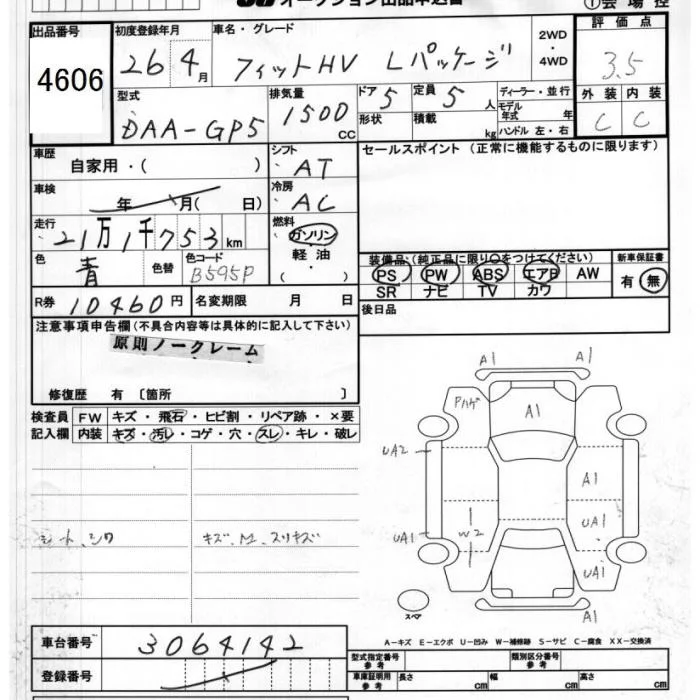 オークション出品申込書
出品番号
4606
初度登録年月
26 4月
車名・グレード
フィットHV Lパッケージ
2WD・4WD
評価点
3.5
外装 内装
C C
型式
DAA-GP5
排気量
1500 CC
ドア 5
形状
定員 5人
積載 kg
ディーラー・並行
モデル年式 年
ハンドル 左・右
車歴
自家用・( )
シフト
AT
セールスポイント (正常に機能するものに限ります)
車検
年 月( 日)
冷房
AC
走行
21万1千753km
燃料
ガソリン
軽油
( ・ )
色
青
色替
色コード
B595P
装備品:(純正品に限り○をつけてください)
PS PW ABS エアB AW
SR ナビ TV カワ
新車保証書
有・無
R券 10460円
名変期限 月 日
後日品
注意事項申告欄(不具合内容等は具体的に記入して下さい)
原則ノークレーム
修復歴 有〔箇所 〕
検査員記入欄
FW キズ・飛石・ヒビ割・リペア跡・×要
内装 キズ・汚レ・コゲ・穴・スレ・キレ・破レ
シート、シワ
キズ、M、スリキズ
A1 A1
Pハゲ
A1
UA2
A1
W2
UA1
UA1
UA1
A1
スペア
A-キズ E-エクボ U-凹み W-補修跡 S-サビ C-腐食 XX-交換済
車台番号 3064142
登録番号
型式指定番号 参考
類別区分番号 参考
車庫証明用 参考
長さ cm 幅 cm 高さ cm